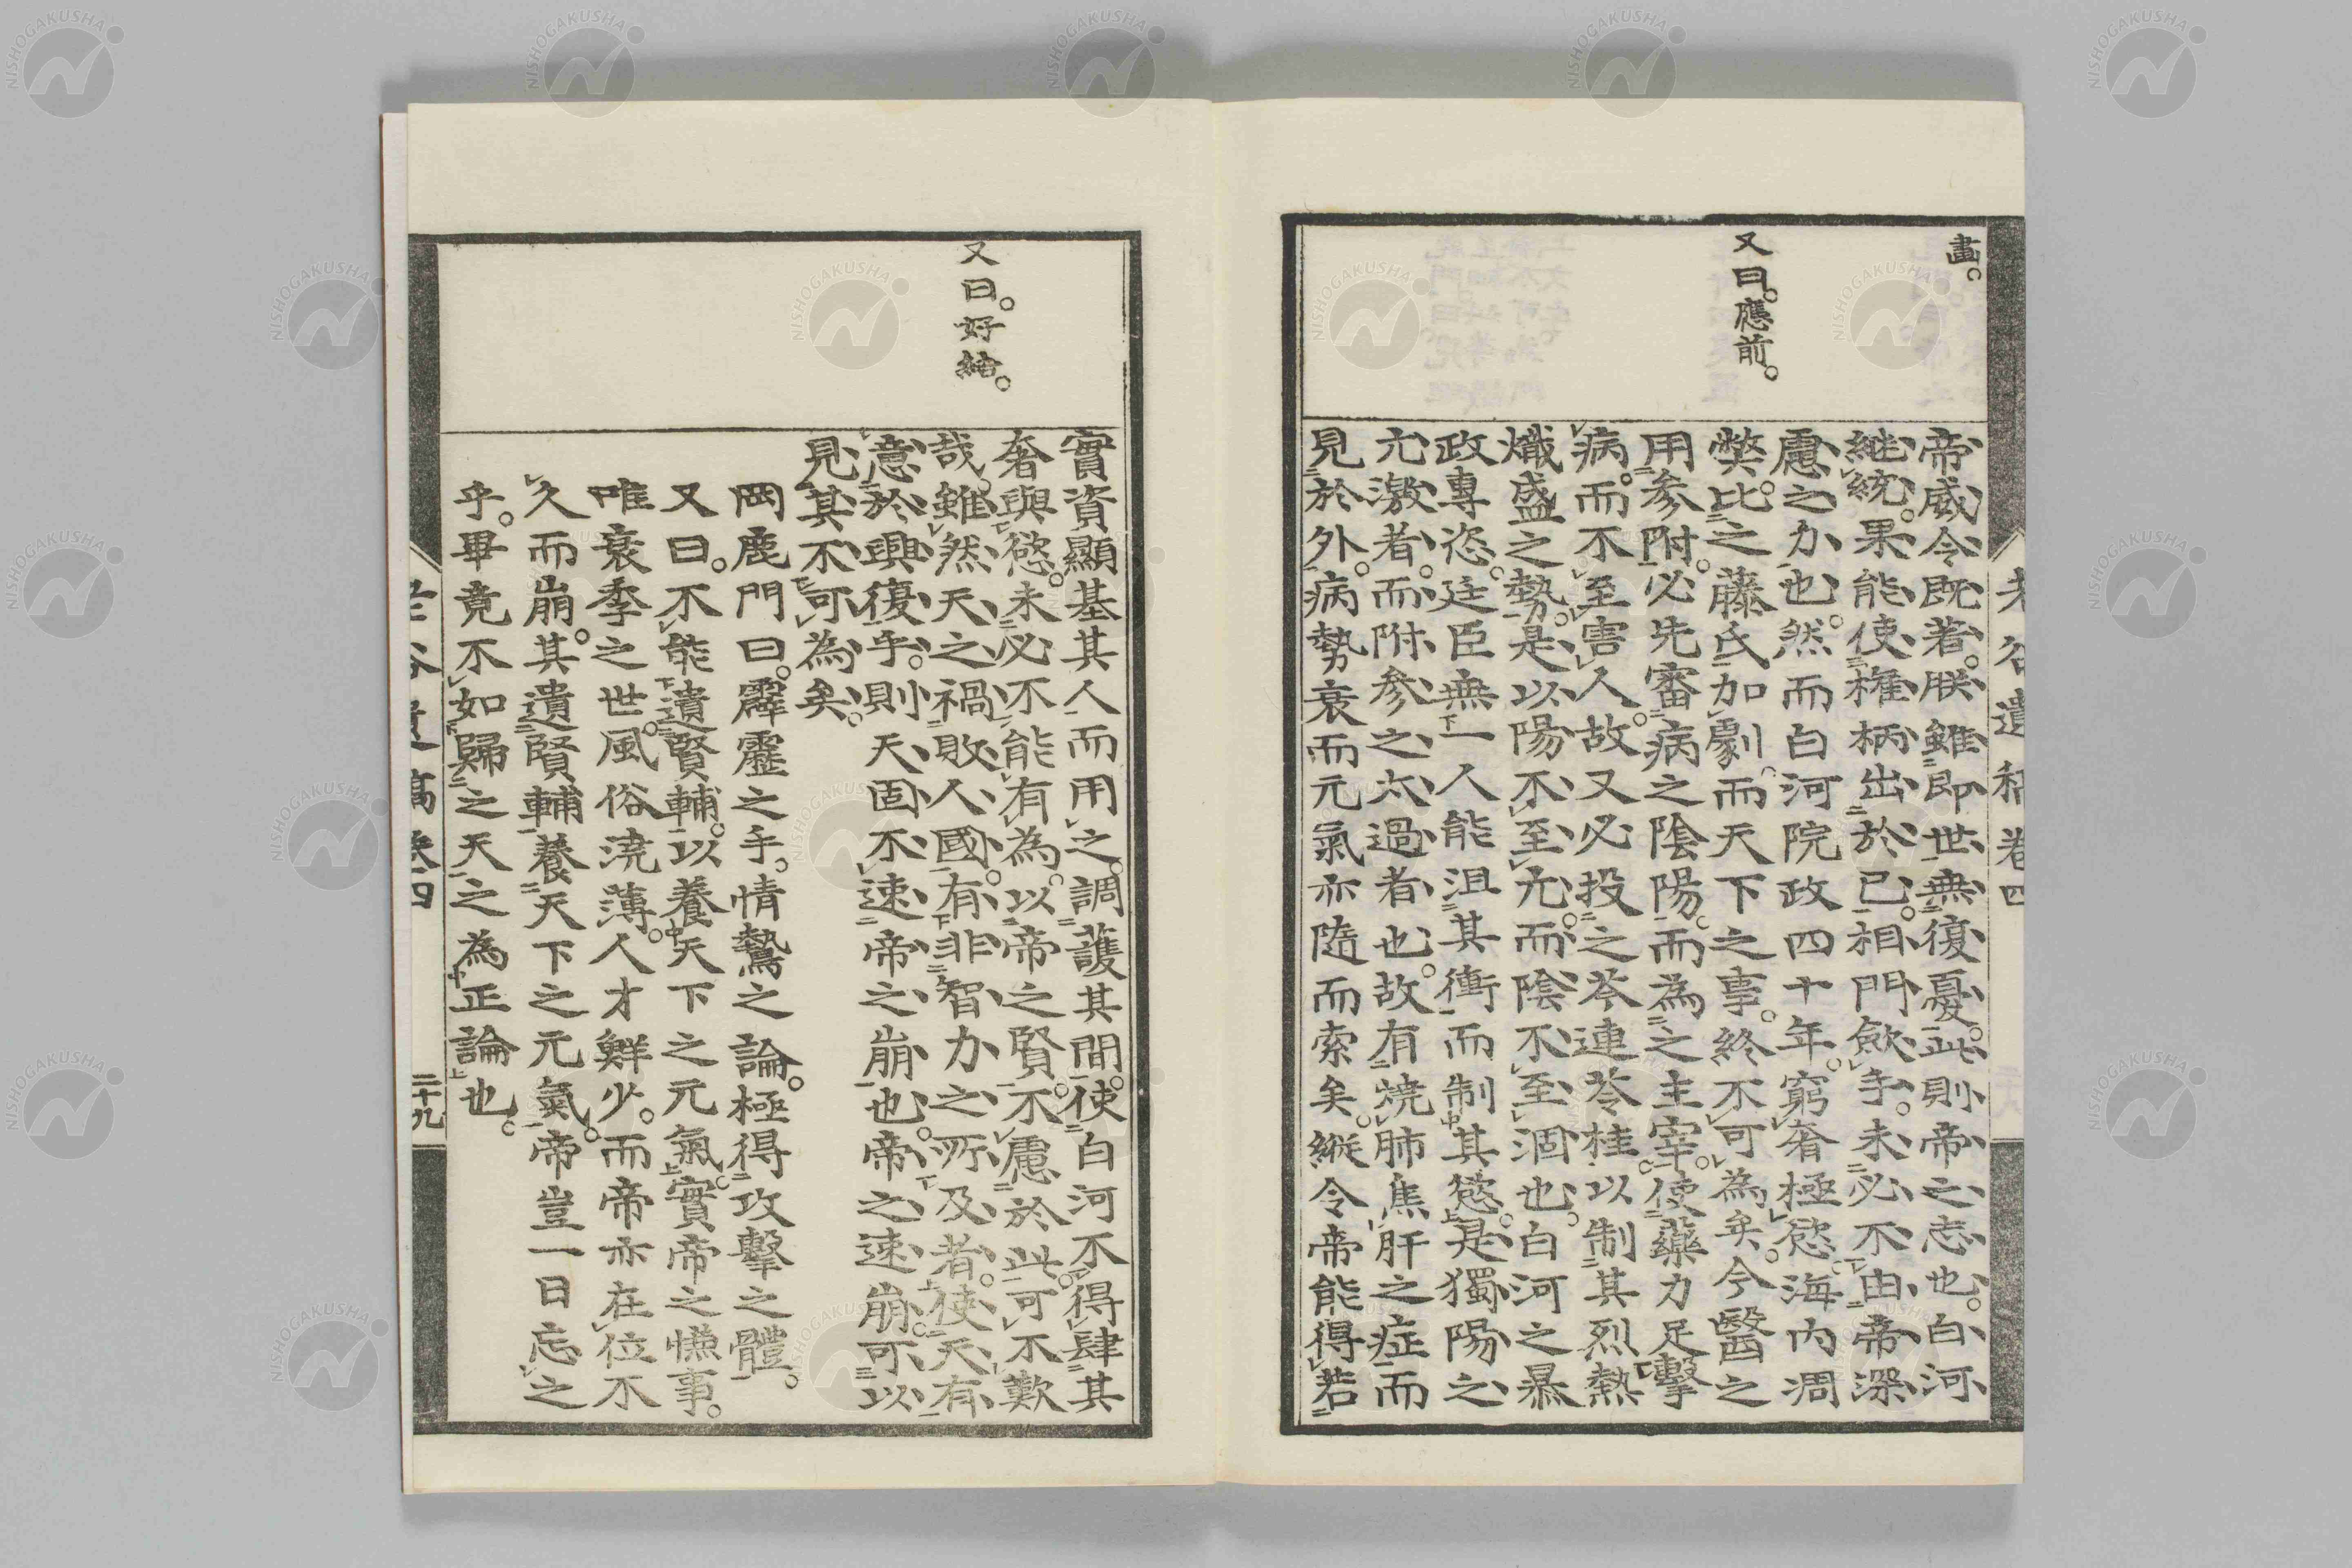 畫。
又曰。應前。
帝威令既著。朕雖即世。無復憂。此則帝之志也。白河
継統。果能使権柄出於已。相門歛手。未必不由帝深
慮之力也。然而白河院政四十年。窮奢極慾。海內凋
弊。比之藤氏加劇。而天下之事。終不可為矣。今醫之
用參附。必先審病之陰陽。而為之主宰。使藥力足擊
病。而不至害人。故又必投之芩連苓桂以制其烈熱
熾盛之勢。是以陽不至亢。而陰不至涸也。白河之暴
政專恣。廷臣無一人能沮其衝而制其慾。是獨陽之
亢激者。而附參之太過者也。故有燒肺焦肝之症而
見於外。病勢衰而元氣亦隨而索矣。縱令帝能得若
老谷遺稿卷四
又曰。好結。
實資顯基其人而用之。調護其間。使白河不得肆其
奢與慾。未必不能有為。以帝之賢。不慮於此。可不歎
哉。雖然天之禍敗人國。有非智力之所及者。使天有
意於興復乎。則天固不速帝之崩也。帝之速崩。可以
見其不可為矣。
岡鹿門曰。霹靂之手。情鷙之論。極得攻擊之體。
又曰。不能遺賢輔。以養天下之元氣。實帝之慊事。
唯衰季之世。風俗澆薄。人才鮮少。而帝亦在位不
久而崩。其遺賢輔養天下之元氣。帝豈一日忘之
乎。畢竟不如歸之天之為正論也。
二十九